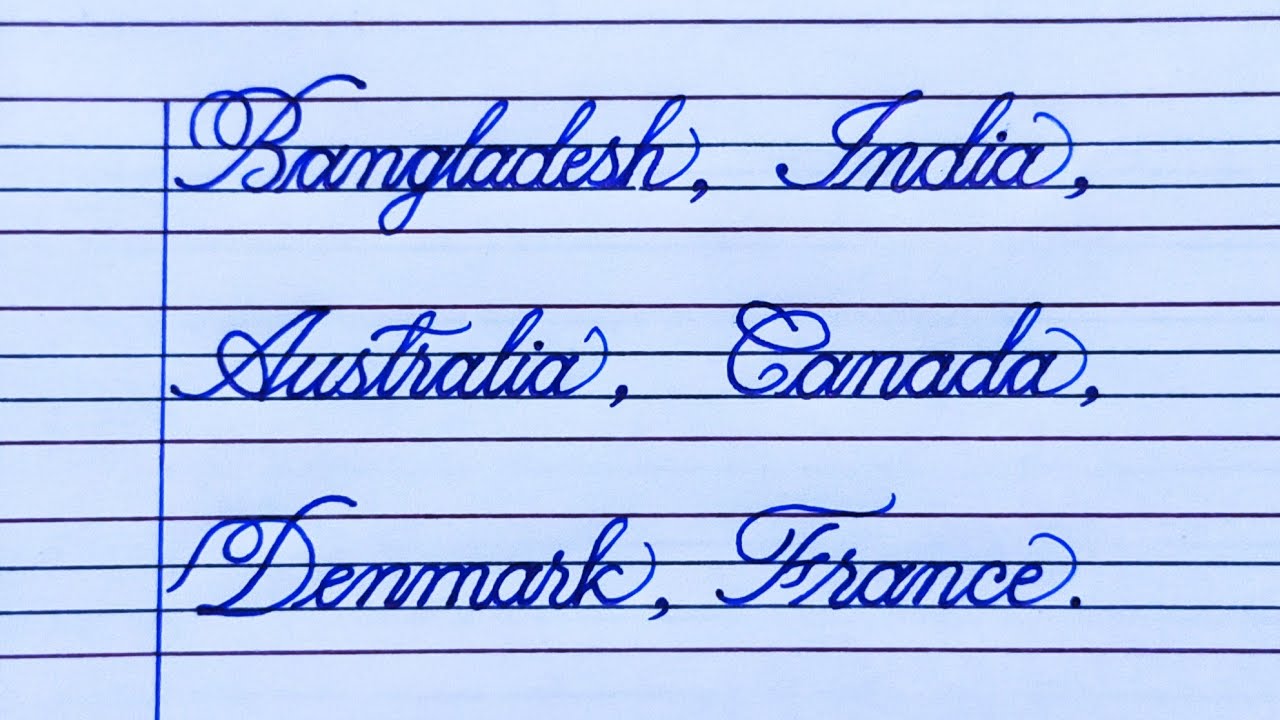 Bangladesh, India,
Australia, Canada,
Denmark, France.